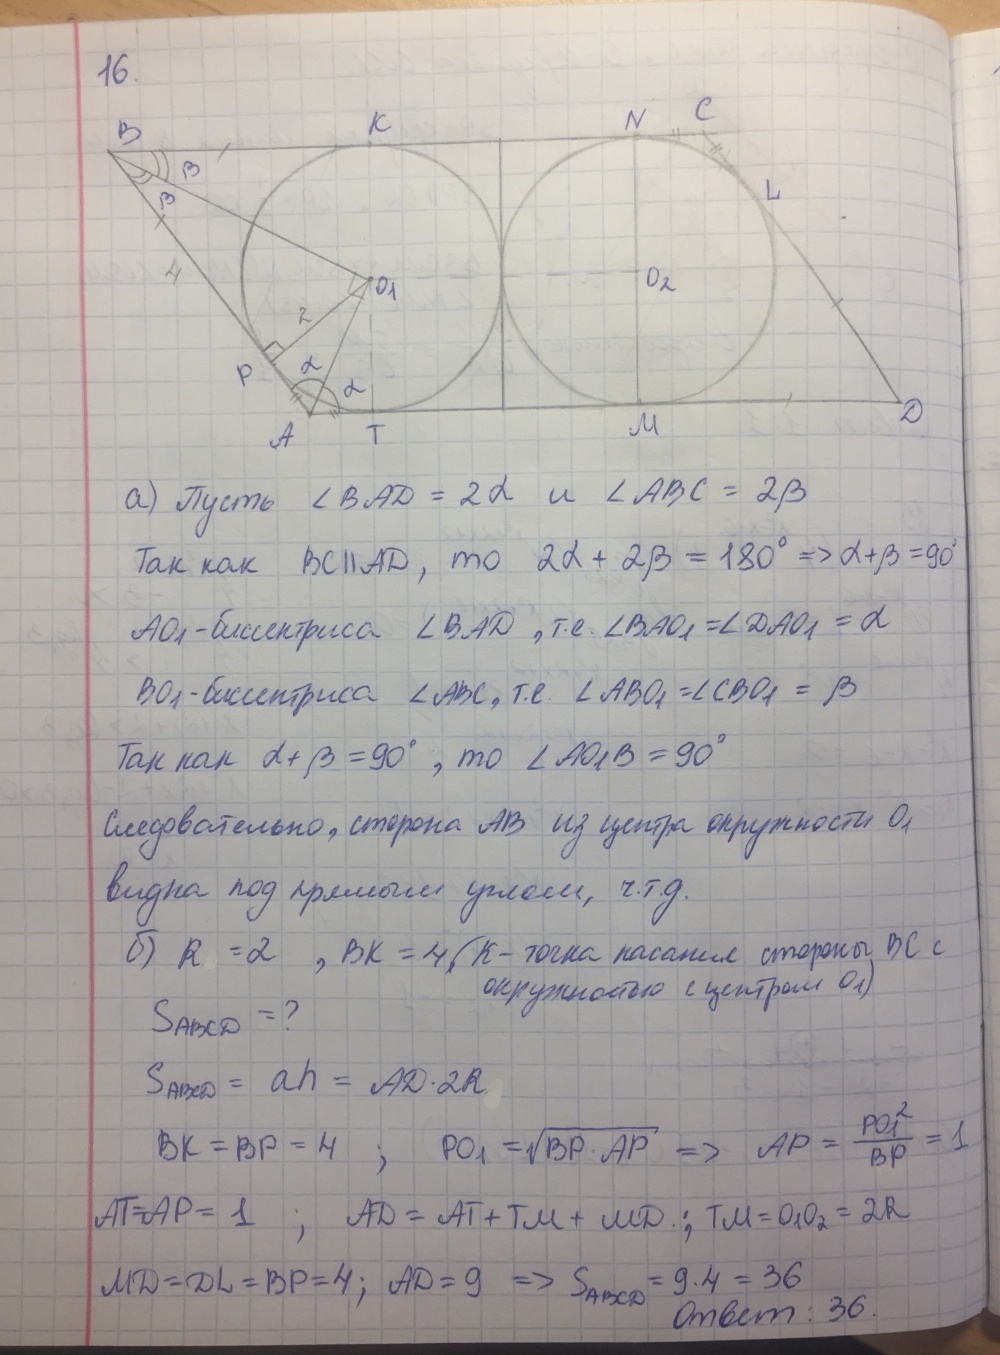 16.
B K N C
β
β
L
4
O₁ O₂
2
P α
α
A T M D
а) Пусть ∠BAD = 2α и ∠ABC = 2β
Так как BC||AD, то 2α + 2β = 180° => α+β=90°
AO₁-биссектриса ∠BAD, т.е. ∠BAO₁=∠DAO₁ = α
BO₁-биссектриса ∠ABC, т.е. ∠ABO₁=∠CBO₁ = β
Так как α+β=90°, то ∠AO₁B = 90°
Следовательно, сторона AB из центра окружности O₁
видна под прямым углом, ч.т.д.
б) R = 2, BK = 4 (K- точка касания стороны BC с
окружностью с центром O₁)
S_ABCD = ?
S_ABCD = ah = AD·2R
BK = BP = 4 ; PO₁ = √(BP·AP) => AP = PO₁²/BP = 1
AT=AP = 1 ; AD = AT + TM + MD ; TM = O₁O₂ = 2R
MD=DL=BP=4; AD=9 => S_ABCD = 9·4 = 36
Ответ: 36.